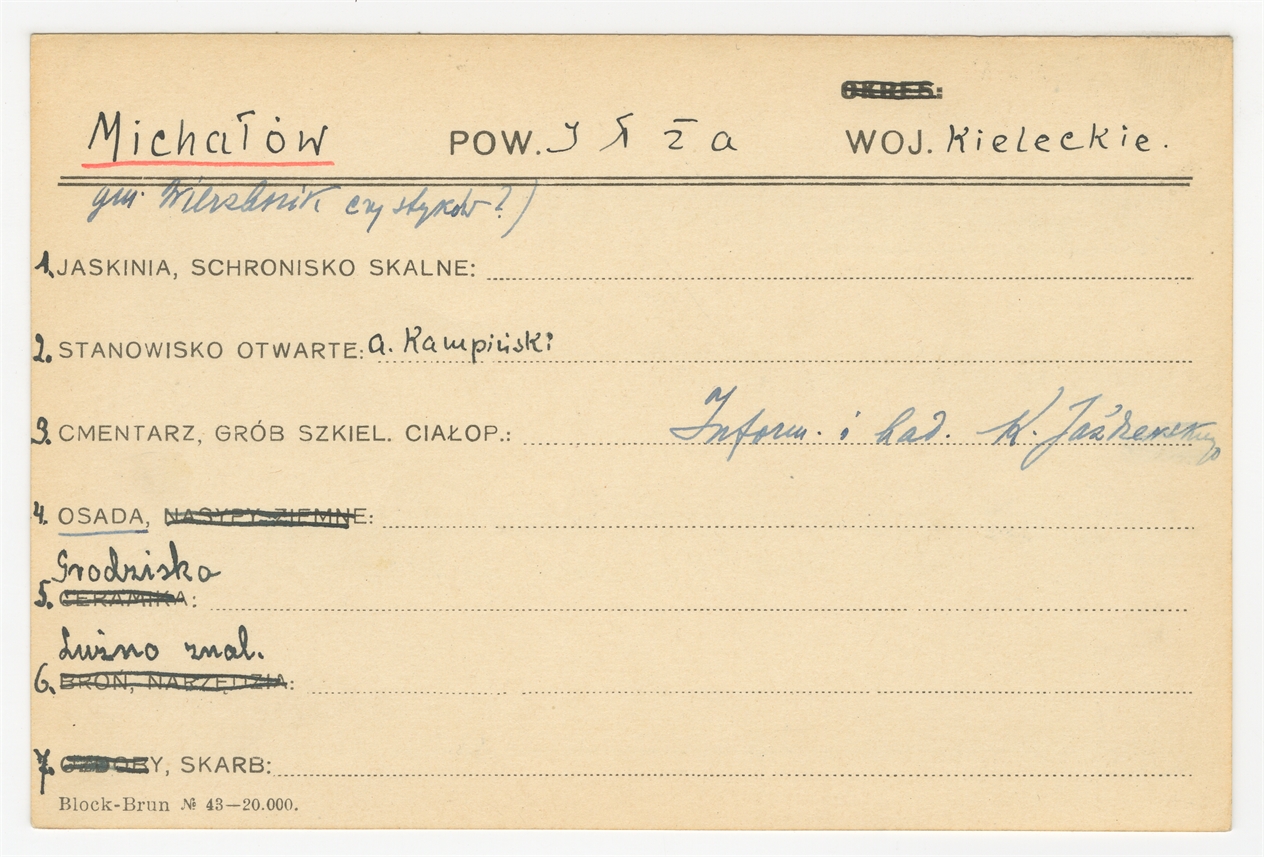 OKRES:
Michałów POW. Iłża WOJ. Kieleckie.
gm. Wierzbnik czy styków?)
1. JASKINIA, SCHRONISKO SKALNE:
2. STANOWISKO OTWARTE: a. Kampiński
3. CMENTARZ, GRÓB SZKIEL. CIAŁOP.: Inform. i bad. K. Jażdżewskiego
4. OSADA, NASYPY ZIEMNE:
Grodzisko
5. CERAMIKA:
Luźno znal.
6. BROŃ, NARZĘDZIA:
7. OZDOBY, SKARB:
Block-Brun № 43—20.000.